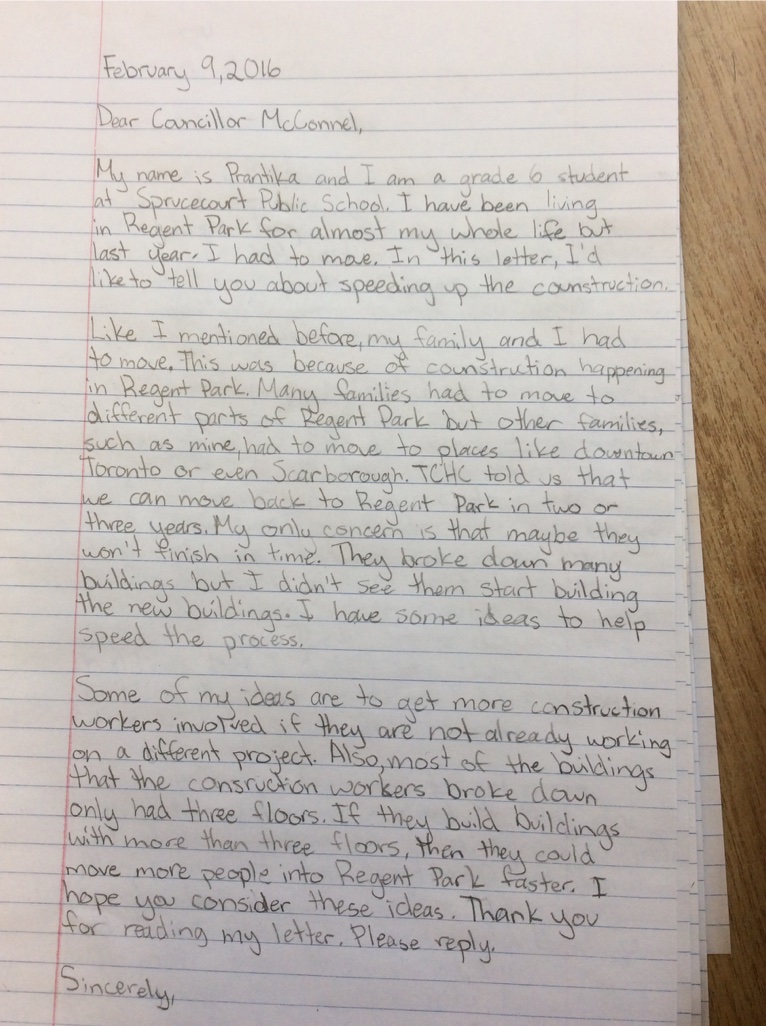 February 9, 2016
Dear Councillor McConnel,
My name is Prantika and I am a grade 6 student
at Sprucecourt Public School. I have been living
in Regent Park for almost my whole life but
last year. I had to move. In this letter, I'd
like to tell you about speeding up the counstruction.
Like I mentioned before, my family and I had
to move. This was because of counstrution happening
in Regent Park. Many families had to move to
different parts of Regent Park but other families,
such as mine, had to move to places like downtown
Toronto or even Scarborough. TCHC told us that
we can move back to Regent Park in two or
three years. My only concern is that maybe they
won't finish in time. They broke down many
buildings but I didn't see them start building
the new buildings. I have some ideas to help
speed the process.
Some of my ideas are to get more construction
workers involved if they are not already working
on a different project. Also, most of the buildings
that the consruction workers broke down
only had three floors. If they build buildings
with more than three floors, then they could
move more people into Regent Park faster. I
hope you consider these ideas. Thank you
for reading my letter. Please reply.
Sincerely,